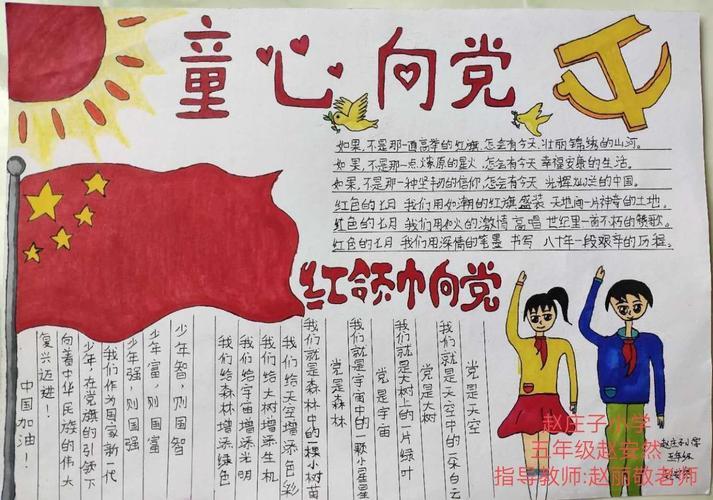 童心向党
如果,不是那一道高举的红旗,怎会有今天,壮丽锦绣的山河。
如果,不是那一点燎原的星火,怎会有今天幸福安康的生活。
如果,不是那一种坚韧的信仰,怎会有今天光辉灿烂的中国。
红色的七月 我们用如潮的红旗盛装 天地间一片神奇的土地。
红色的七月 我们用似火的激情 高唱 世纪里一首不朽的赞歌。
红色的七月 我们用深情的笔墨 书写 八十年一段艰辛的历程。
红领巾向党
党是天空
我们就是天空中的一朵白云
党是大树
我们就是大树上的一片绿叶
党是宇宙
我们就是宇宙中的一颗小星星
党是森林
我们就是森林中的一棵小树苗
我们给天空增添色彩
我们给大树增添生机
我们给宇宙增添光明
我们给森林增添绿色
少年智,则国智
少年富,则国富
少年强,则国强
我们作为国家新一代
少年,在党旗的引领下
向着中华民族的伟大
复兴迈进!
中国加油!
赵庄子小学
五年级
赵庄子小学
五年级赵安然
指导教师:赵丽敬老师